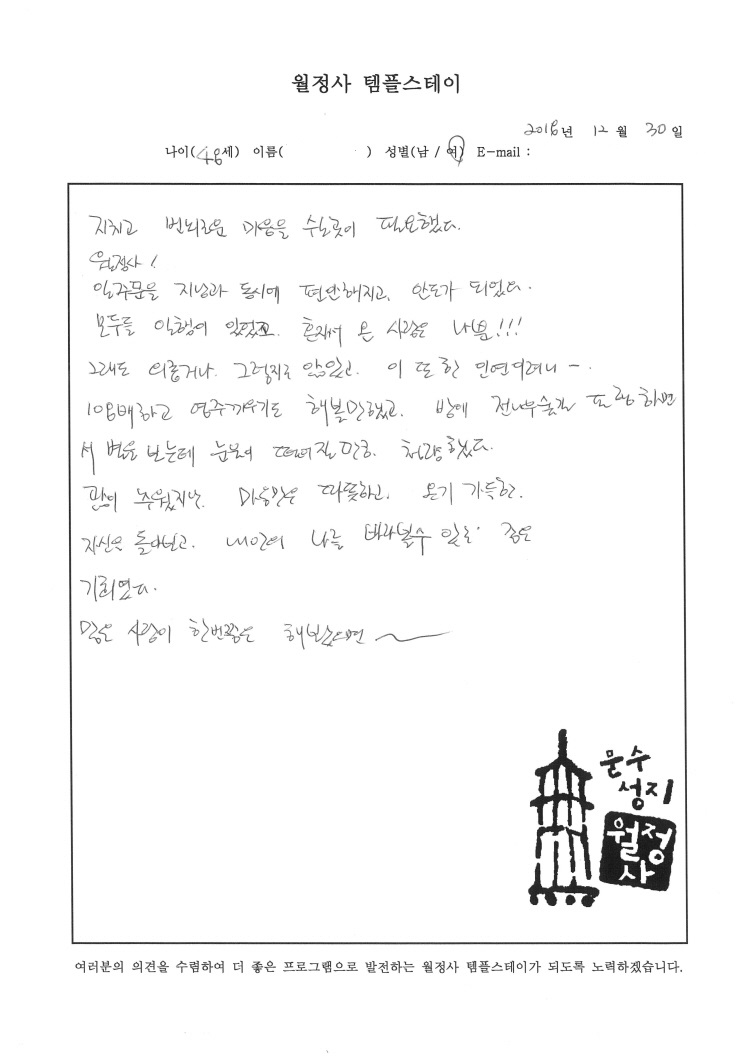 월정사 템플스테이
2018년 12월 30일
나이(48세) 이름( ) 성별(남 / 여) E-mail :
지치고 번뇌로운 마음을 쉬일곳이 필요했다.
월정사!
일주문을 지남과 동시에 편안해지고, 안도가 되었다.
모두들 일행이 있었고. 혼자서 온 사람은 나뿐!!!
그래도 외롭거나. 그렇지도 않았고. 이 또한 인연이려니 -.
108배하고 염주끼우기도 해볼만했고. 밤에 전나무숲길 포행하면
서 별을 보는데 눈물이 떨어질 만큼. 청량했다.
많이 추웠지만. 마음만은 따뜻하고. 온기 가득한.
자신을 돌아보고. 내안의 나를 바라볼수 있는 좋은
기회였다.
많은 사람이 한번쯤은 해보았으면 ~
문수
성지
월정
사
여러분의 의견을 수렴하여 더 좋은 프로그램으로 발전하는 월정사 템플스테이가 되도록 노력하겠습니다.